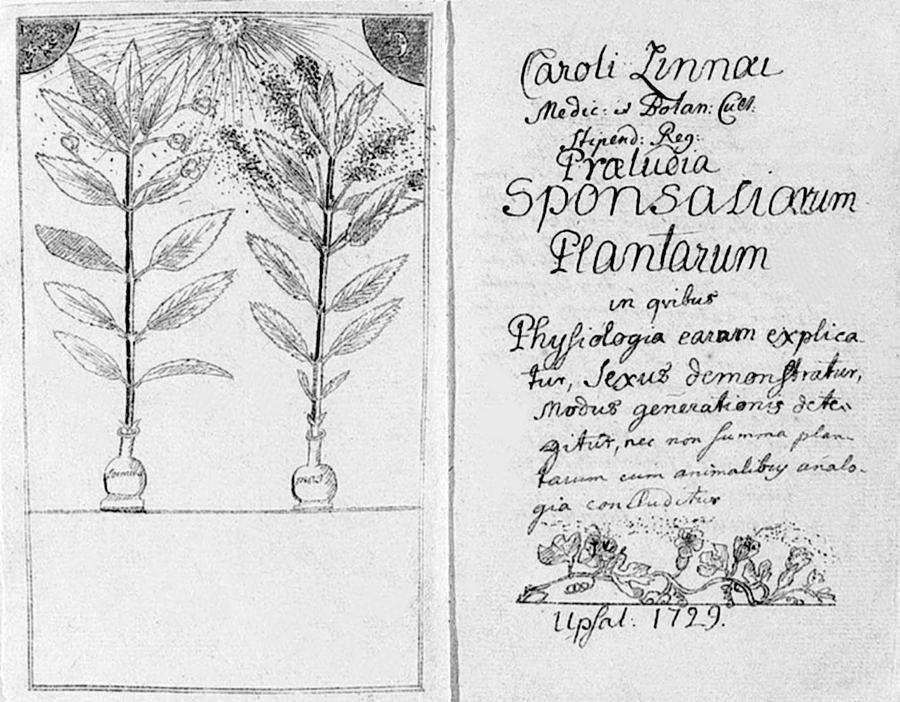 femina
mas
Caroli Linnæi
Medic: et Botan: Cult.
Stipend: Reg:
Præludia
Sponsaliorum
Plantarum
in qvibus
Physiologia earum explica
tur, Sexus demonstratur,
Modus generationis dete-
gitur, nec non summa plan-
tarum cum animalibus analo-
gia concluditur
Upsal: 1729.